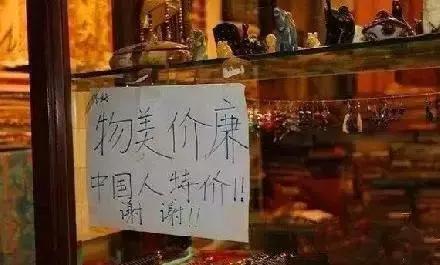 物美价廉
中国人特价!!
谢谢!!